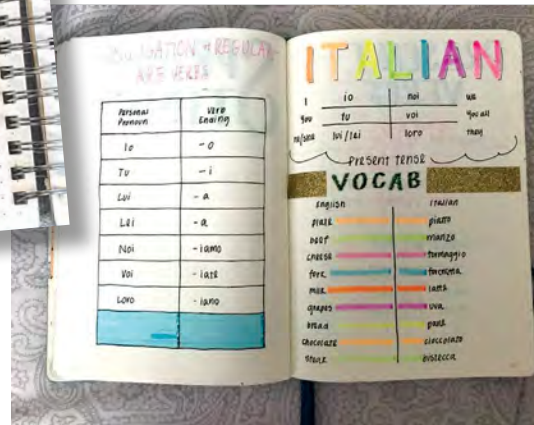 CONJUGATION of REGULAR
ARE VERBS
Personal Pronoun Verb Ending
Io -o
Tu -i
Lui -a
Lei -a
Noi -iamo
Voi -iate
Loro -iano
ITALIAN
I io noi we
You tu voi You all
he/she lui/lei loro they
Present tense
VOCAB
English Italian
plate piatto
beef manzo
cheese formaggio
fork forchetta
milk latte
grapes uva
bread pane
chocolate cioccolato
steak bistecca